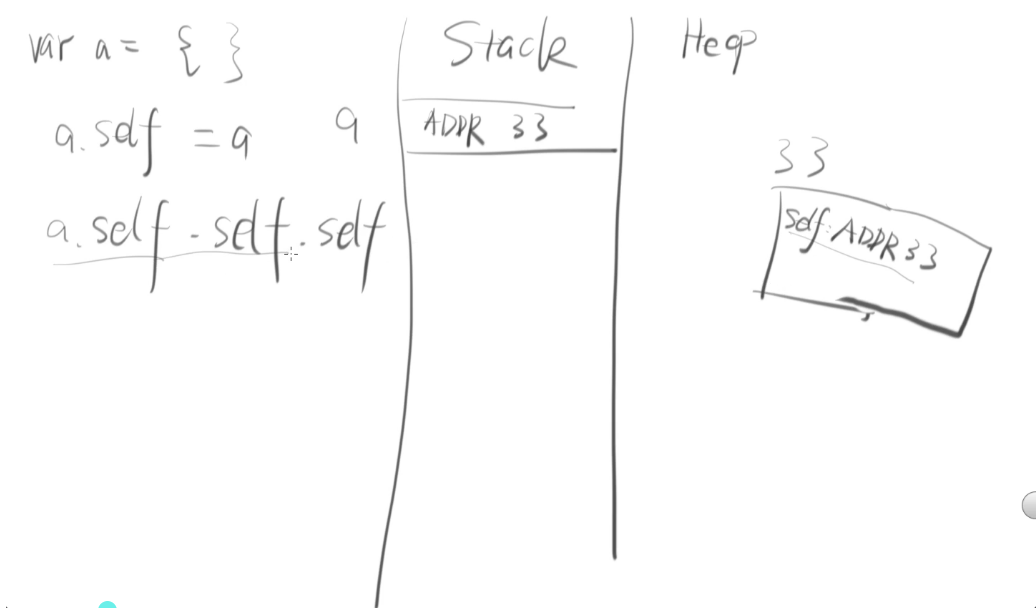 var a = { }
a.self = a
a.self.self.self
Stack
a ADDR 33
Heap
33
self: ADDR 33